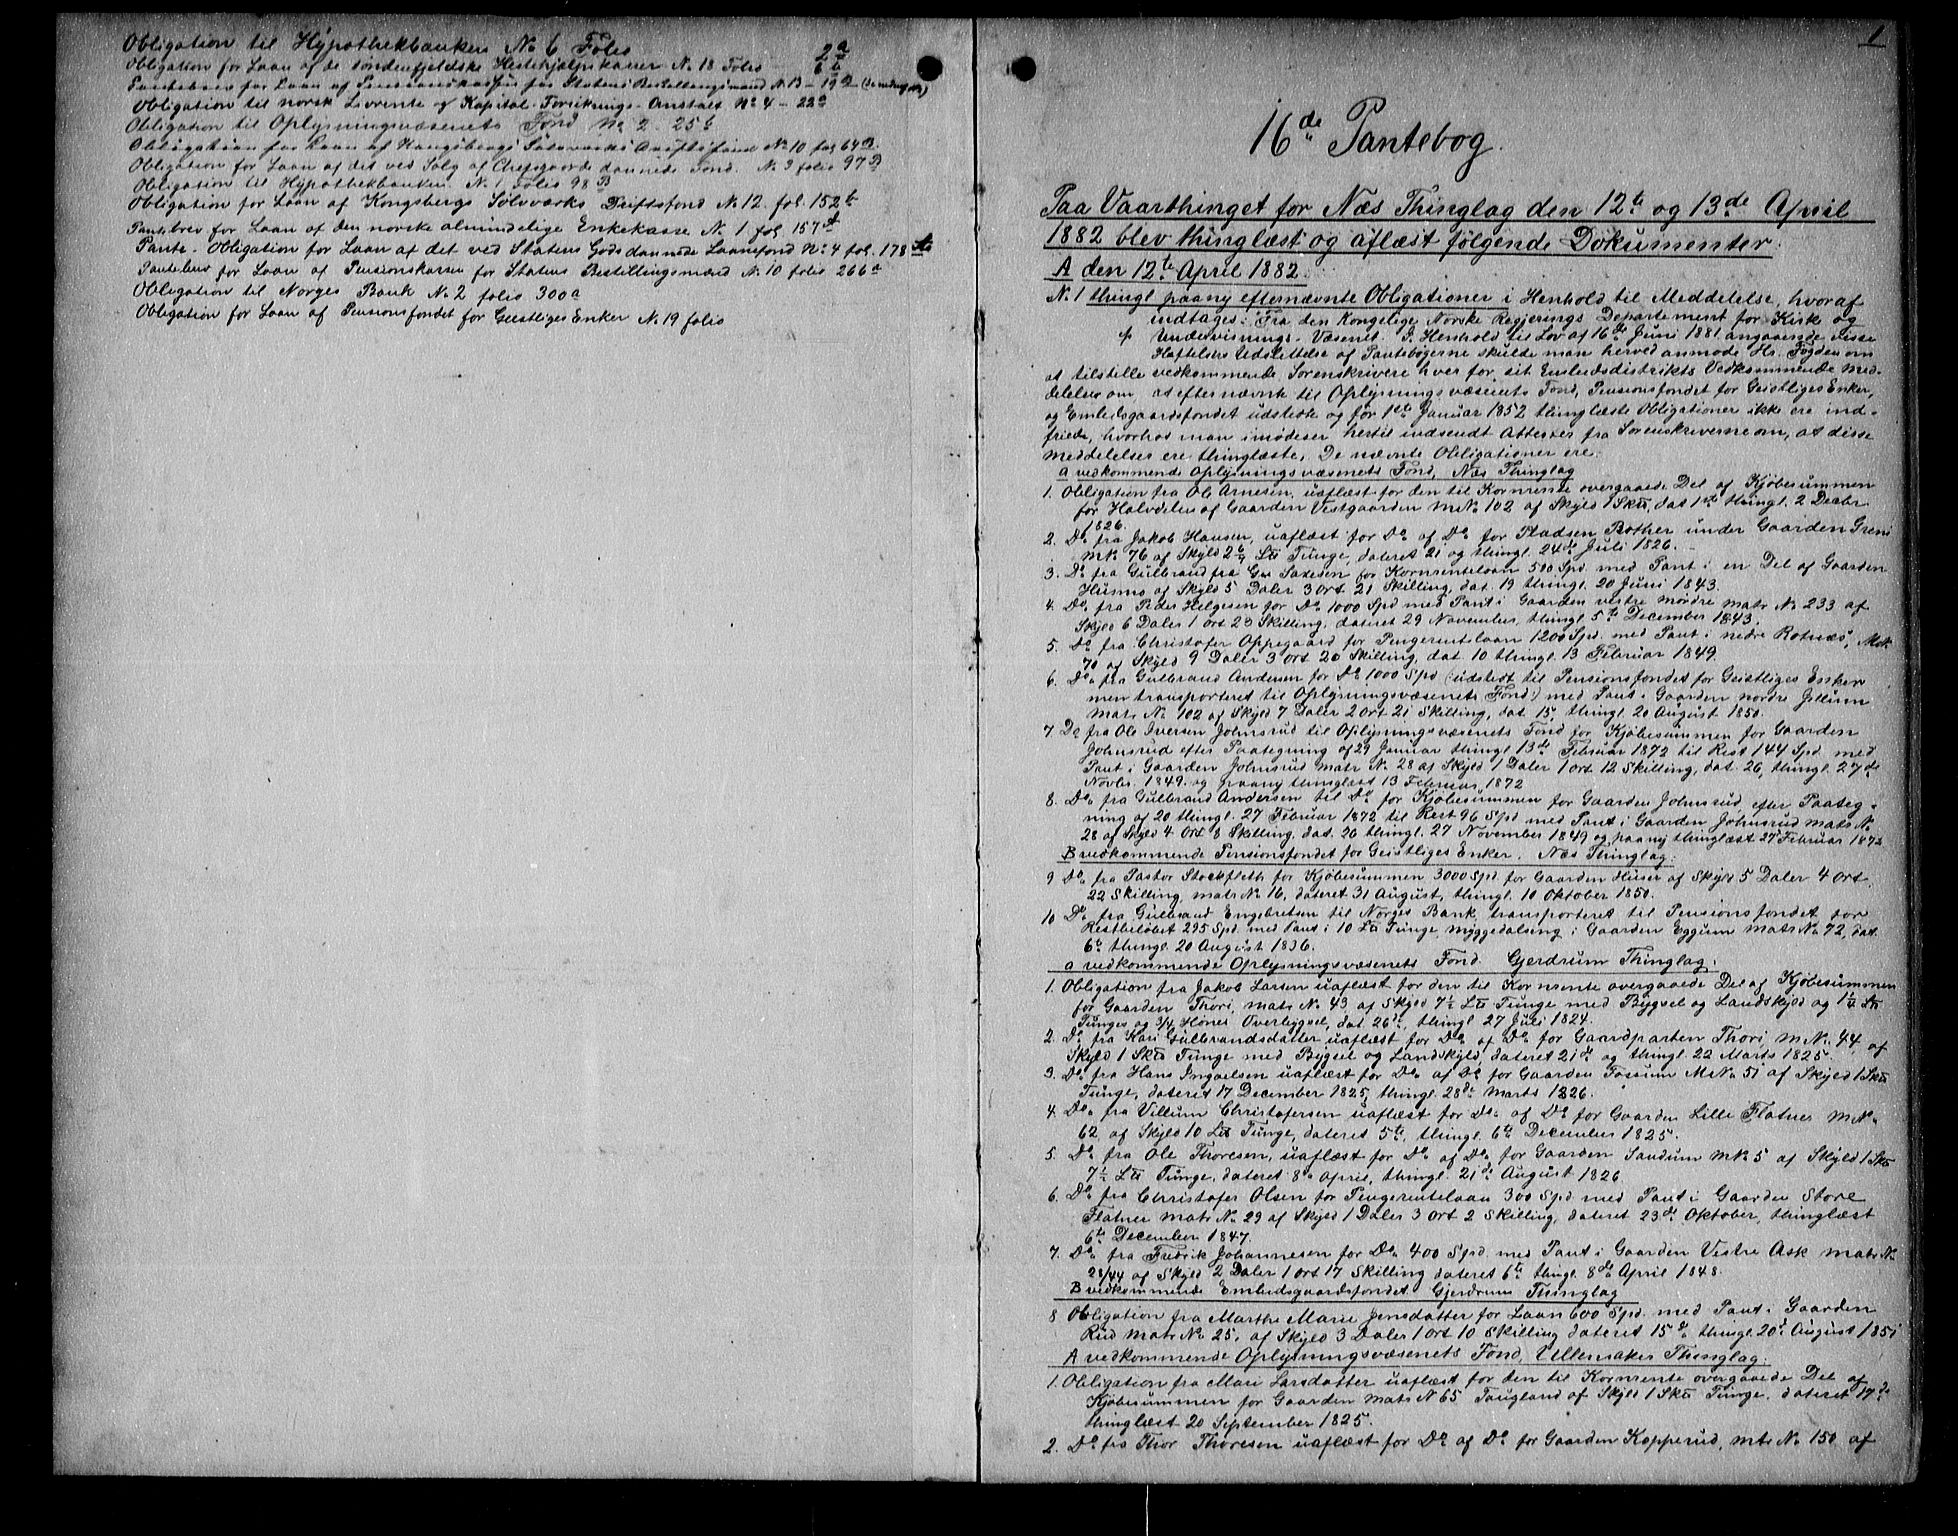 Obligation til Hypothekbanken No 6 Folio 2a
Obligation for Laan af de søndenfjeldske Hestehjælpskasser No 18 Folio 6b
Pantebrev for Laan af Pensionskassen for Statens Bestillingsmænd N. 13 - 19a
Obligation til norsk Livrente og Kapital-Forsikrings-Anstalt No 4 - 22a
Obligation til Oplysningsvæsenets Fond No 2 - 25b
Obligation for Laan af Kongsbergs Sølvværks Driftsfond No 10 fol 64B
Obligation for Laan af det ved Salg af Chefsgaarde dannede Fond. N. 3 folio 97B
Obligation til Hypothekbanken. N. 1 Folio 98B
Obligation for Laan af Kongsbergs Sølvværks Driftsfond N. 12. fol. 152b
Pantebrev for Laan af den norske almindelige Enkekasse N. 1 fol 157
Pante-Obligation for Laan af det ved Statens Gods dannede Laanefond No 4 fol. 178
Pantebrev for Laan af Pensionskassen for Statens Bestillingsmænd N. 10 folio 266a
Obligation til Norges Bank N. 2 folio 300a
Obligation for Laan af Pensionsfondet for Geistliges Enker N. 19 folio
1
16de Pantebog.
Paa Vaarthinget for Næs Thinglag den 12te og 13de April
1882 blev thinglæst og aflæst følgende Dokumenter.
A den 12te April 1882.
N. 1 thingl paany efternævnte Obligationer i Henhold til Meddelelse, hvoraf
indtages: Fra den Kongelige Norske Regjerings Departement for Kirke og
Undervisnings-Væsenet. I Henhold til Lov af 16de Juni 1881 angaaende visse
Hæftelsers Udslettelse af Pantebøgerne skulde man herved anmode Hr. Fogden om
at tilstille vedkommende Sorenskrivere hver for sit Embedsdistrikts Vedkommende Med-
delelse om, at efternævnte til Oplysningsvæsenets Fond, Pensionsfondet for Geistliges Enker,
og Embedsgaardsfondet udstedte og før 1ste Januar 1852 thinglæste Obligationer ikke ere ind-
friede, hvorhos man imødeser hertil indsendt Attester fra Sorenskriverne om, at disse
Meddelelser ere thinglæste. De nævnte Obligationer ere:
a vedkommende Oplysningsvæsenets Fond, Næs Thinglag
1. Obligation fra Ole Arnesen, uaflæst for den til Kornrente overgaaede Del af Kjøbesummen
for Halvdelen af Gaarden Vestgaarden M.No. 102 af Skyld 1 Sk℔, dat 1ste thingl. 2 Decbr
1826.
2. Do fra Jakob Hansen, uaflæst for Do af Do for Pladsen Bother under Gaarden Greni
MNo. 76 af Skyld 2 6/7 L℔ Tunge, dateret 21 og thingl. 24de Juli 1826.
3. Do fra Gulbrand fra Gus Saxesen for Kornrentelaan 500 Spd med Pant i en Del af Gaarden
Husmo af Skyld 5 Daler 3 Ort 21 Skilling, dat. 19 thingl. 20 Juni 1843.
4. Do. fra Peder Helgesen for Do 1000 Spd med Pant i Gaarden vestre Mordre matr No 233 af
Skyld 6 Daler 1 Ort 23 Skilling, dateret 29 November, thingl. 5te December 1843.
5. Do fra Christofer Oppegaard for Pengerentelaan 1200 Spd. med Pant i nedre Rotnæs, Mat.
70 af Skyld 9 Daler 3 Ort 20 Skilling, dat 10 thingl. 13 Februar 1849.
6. Do. fra Gulbrand Andersen for Do 1000 Spd (udstedt til Pensionsfondet for Geistliges Enker
men transporteret til Oplysningsvæsenets Fond) med Pant i Gaarden nordre Jstlum
Matr No 102 af Skyld 7 Daler 2 Ort 21 Skilling, dat 15, thingl. 20 August 1850.
7. Do fra Ole Iversen Johnsrud til Oplysningsvæsenets Fond for Kjøbesummen for Gaarden
Johnsrud efter Paategning af 29 Januar thingl 13de Februar 1872 til Rest 144 Spd. med
Pant i Gaarden Johnsrud matr No. 28 af Skyld 1 Daler 1 Ort 12 Skilling, dat. 26, thingl. 27de
Novbr. 1849. og paany thinglæst 13 Februar 1872
8. Do. fra Gulbrand Andersen til Do for Kjøbesummen for Gaarden Johnsrud, efter Paateg-
ning af 20 thingl. 27 Februar 1872 til Rest 96 Spd med Pant i Gaarden Johnsrud Matr No
28 af Skyld 4 Ort 8 Skilling, dat. 26 thingl. 27 November 1849 og paany thinglæst 27 Februar 1872
B vedkommende Pensionsfondet for Geistliges Enker. Næs Thinglag.
9 Do. fra Pastor Stockfleth for Kjøbesummen 3000 Spd for Gaarden Huser af Skyld 5 Daler 4 Ort
22 Skilling matr No 16, dateret 31 August, thingl. 10 Oktober 1850.
10 Do. fra Gulbrand Engebretsen til Norges Bank, transporteret til Pensionsfondet for
Restbeløbet 295 Spd. med Pant i 10 L℔ Tunge, Myggedalseng i Gaarden Eggum Matr No. 72, dat.
6te thingl. 20 August 1836.
a vedkommende Oplysningsvæsenets Fond. Gjerdrum Thinglag.
1. Obligation fra Jakob Larsen uaflæst for den til Kornrente overgaaede Del af Kjøbesummen
for Gaarden Thori, matr No. 43 af Skyld 7½ L℔ Tunge med Bygsel og Landskyld og 1¼ L℔
Tunges og 3/4 Hones Overbygsel, dat. 26de, thingl. 27 Juli 1824.
2. Do. fra Kari Gulbrandsdatter uaflæst for Do af Do. for Gaardparten Thori, M.N. 44, af
Skyld 1 Sk℔ Tunge med Bygsel og Landskyld, dateret 21de og thingl. 22 Marts 1825.
3. Do. fra Hans Ingvelsen uaflæst for Do. af Do for Gaarden Fossum MNo 51 af Skyld 1 Sk℔
Tunge, dateret 17 December 1825, thingl. 28de Marts 1826.
4. Do. fra Villum Christofersen uaflæst for Do. af Do for Gaarden Lille Flatner MNo
62, af Skyld 10 L℔ Tunge, dateret 5te, thingl. 6te December 1825.
5. Do. fra Ole Thoresen, uaflæst for Do af Do. for Gaarden Sandum MNo 5 af Skyld 1 Sk℔
7½ L℔ Tunge, dateret 8de April, thingl. 21de August 1826
6. Do. fra Christofer Olsen for Pengerentelaan 300 Spd med Pant i Gaarden Store
Flatner Matr No. 29 af Skyld 1 Daler 3 Ort 2 Skilling, dateret 23de Oktober, thinglæst
6te December 1847.
7. Do. fra Fredrik Johannesen for Do. 400 Spd. med Pant i Gaarden Vestre Ask matr No
28/44 af Skyld 2 Daler 1 Ort 17 Skilling dateret 6te thingl. 8de April 1848.
B vedkommende Embedsgaardsfondet Gjerdrum Thinglag
8 Obligation fra Marthe Marie Jensdatter for Laan 600 Spd. med Pant i Gaarden
Rud Matr No. 25, af Skyld 3 Daler 1 Ort 10 Skilling dateret 15de, thingl. 20de August 1851
A vedkommende Oplysningsvæsenets Fond, Ullensaker Thinglag.
1. Obligation fra Mari Larsdatter uaflæst for den til Kornrente overgaaede Del af
Kjøbesummen for Gaarden Matr N 65 Laugland af Skyld 1 Sk℔ Tunge, dateret 17de
thinglæst 20 September 1825.
2. Do. fra Thor Thoresen uaflæst for Do. af Do. for Gaarden Kopperud, Mtr No. 150 af